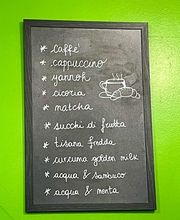 * caffè
* cappuccino
* yannoh
* cicoria
* matcha
* succhi di frutta
* tisana fredda
* curcuma golden milk
* acqua & sambuco
* acqua & menta